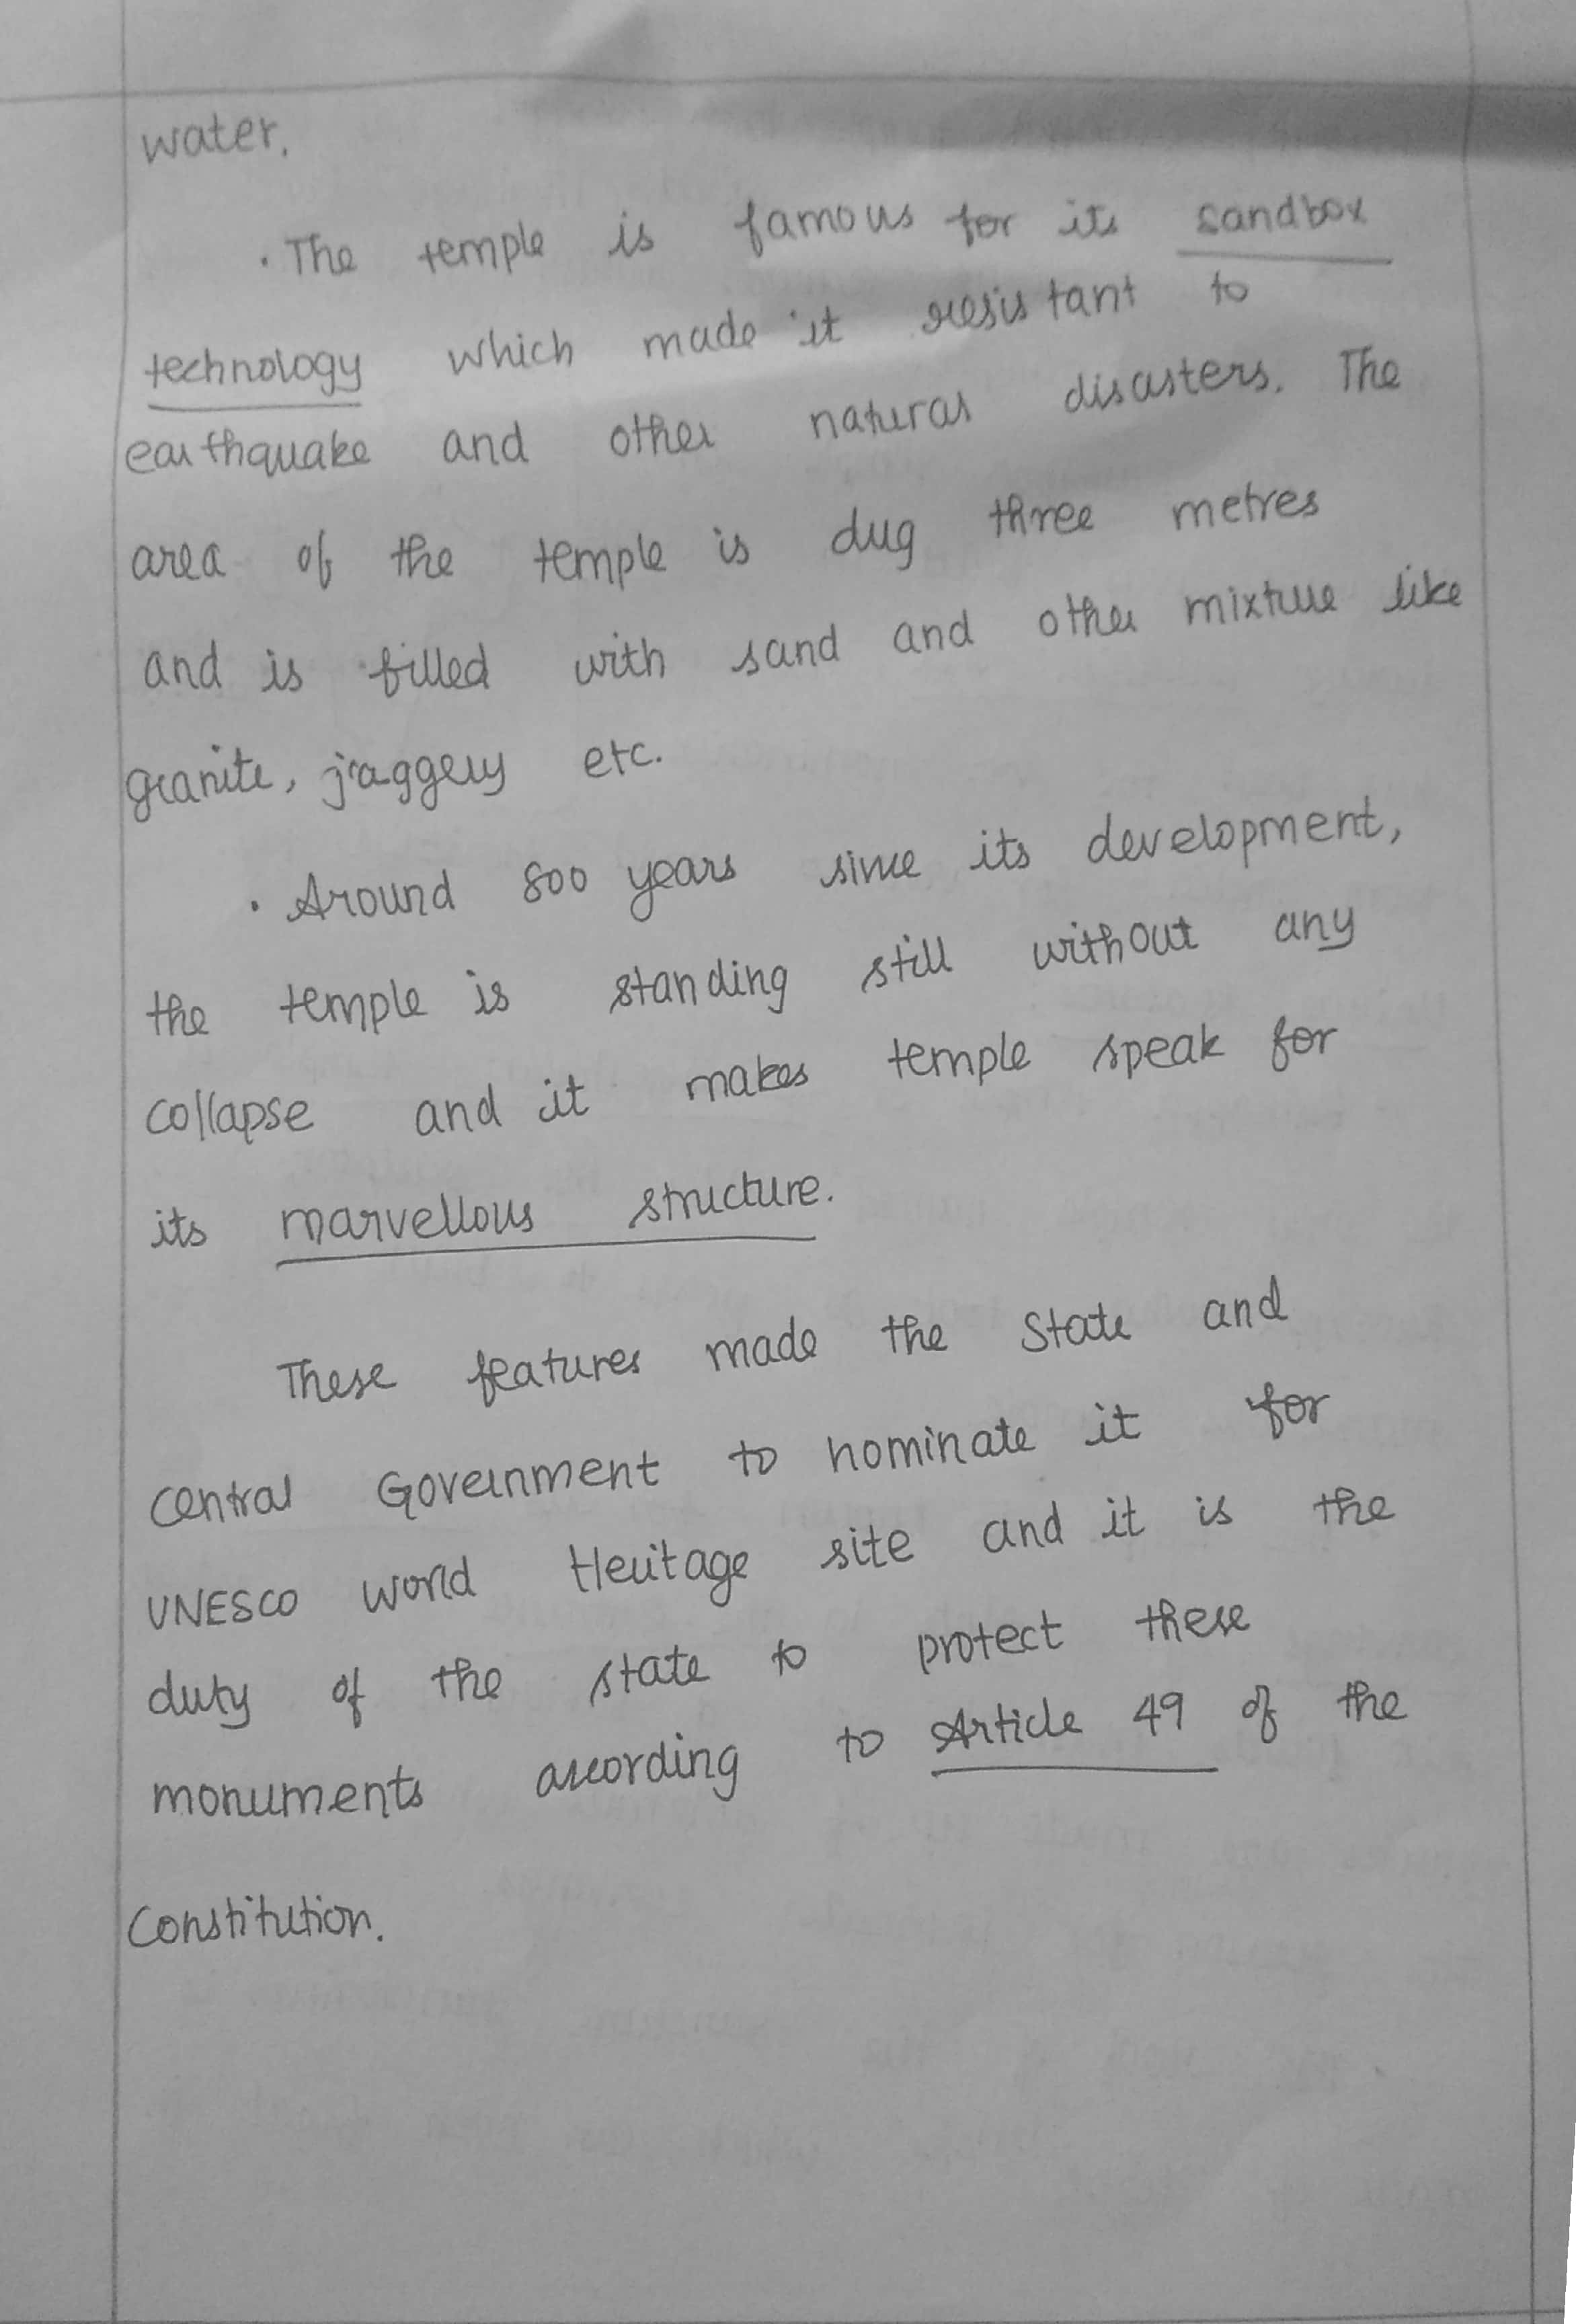 water.
· The temple is famous for its sandbox
technology which made it resistant to
earthquake and other natural disasters. The
area of the temple is dug three metres
and is filled with sand and other mixture like
granite, jaggery etc.
· Around 800 years since its development,
the temple is standing still without any
collapse and it makes temple speak for
its marvellous structure.
These features made the State and
Central Government to nominate it for
UNESCO World Heritage site and it is the
duty of the state to protect these
monuments according to Article 49 of the
Constitution.